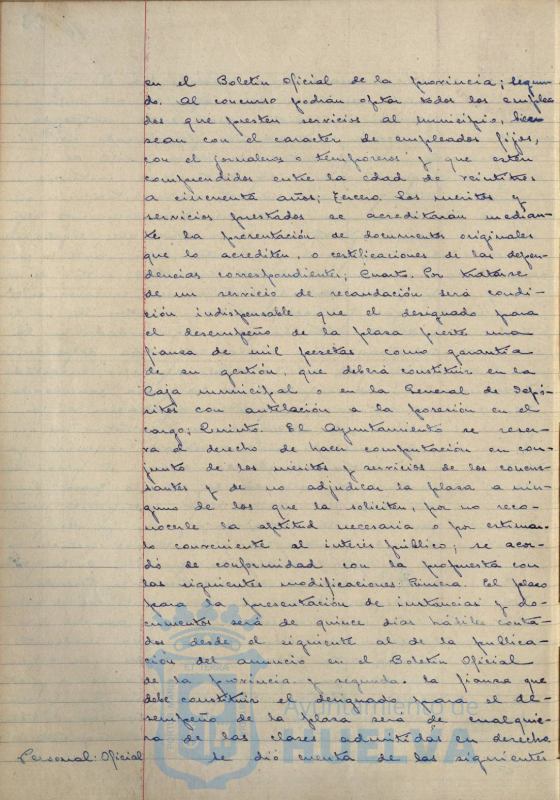 en el Boletín Oficial de la provincia; Segun-
do. Al concurso podrán optar todos los emplea
dos que presten servicios al municipio, bien
sean con el caracter de empleados fijos,
con el jornaleros o temporeros y que esten
comprendidos entre la edad de veintitres
a cincuenta años; Tercero. Los meritos y
servicios prestados se acreditarán median-
te la presentación de documentos originales
que lo acrediten, o certificaciones de las depen-
dencias correspondientes; Cuarto. Por tratarse
de un servicio de recaudación será condi-
ción indispensable que el designado para
el desempeño de la plaza preste una
fianza de mil pesetas como garantía
de su gestión, que deberá constituir en la
Caja municipal o en la General de Depó-
sitos con antelación a la posesión en el
cargo; Quinto. El Ayuntamiento se reser-
va el derecho de hacer computación en con-
junto de los méritos y servicios de los concur-
santes y de no adjudicar la plaza a nin-
guno de los que la soliciten, por no reco-
nocerle la aptitud necesaria o por estimar-
lo conveniente al interés público; se acor-
dó de conformidad con la propuesta con
las siguientes modificaciones: Primera. El plazo
para la presentación de instancias y do-
cumentos será de quince dias hábiles conta-
dos desde el siguiente al de la publica-
ción del anuncio en el Boletín Oficial
de la provincia. y segunda. la fianza que
debe constituir el designado para el de-
sempeño de la plaza será de cualquie-
ra de las clases admitidas en derecho
Personal: Oficial Se dió cuenta de las siguientes
Ayuntamiento de
HUELVA